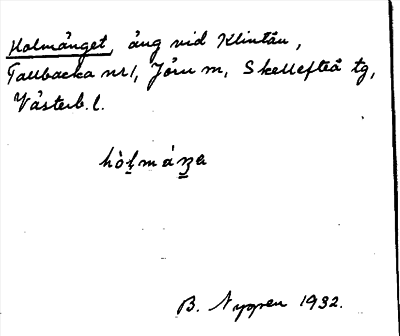 Holmånget, ång vid Klintån,
Tallbacka nr 1, Jörn m, Skellefteå tg,
Västerb. l.
hòl̠máŋ̠a
B. Nygren 1932.